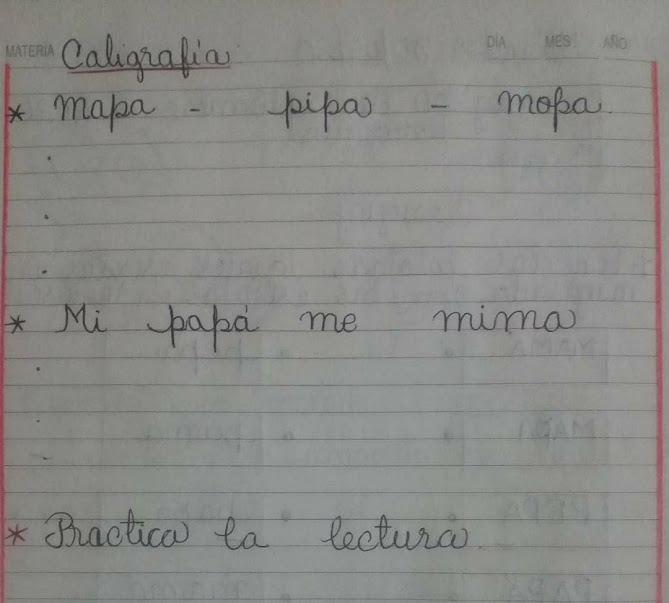 MATERIA Caligrafía DÍA MES AÑO
* mapa - pipa - mopa.
* Mi papá me mima
* Practica la lectura.